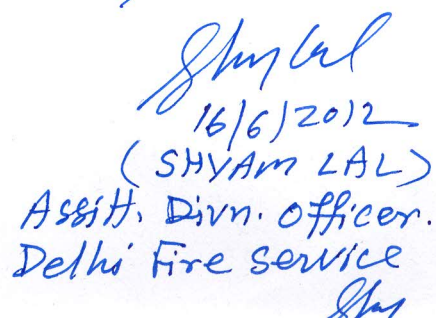 Shyam Lal
16/6/2012
(SHYAM LAL)
Assitt. Divn. Officer.
Delhi Fire Service